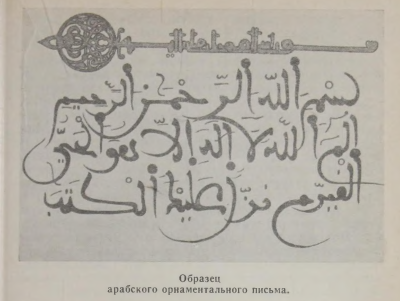 بسم الله الرحمن الرحيم
الم الله لا اله الا هو الحي
القيوم نزل عليك الكتب
Образец
арабского орнаментального письма.